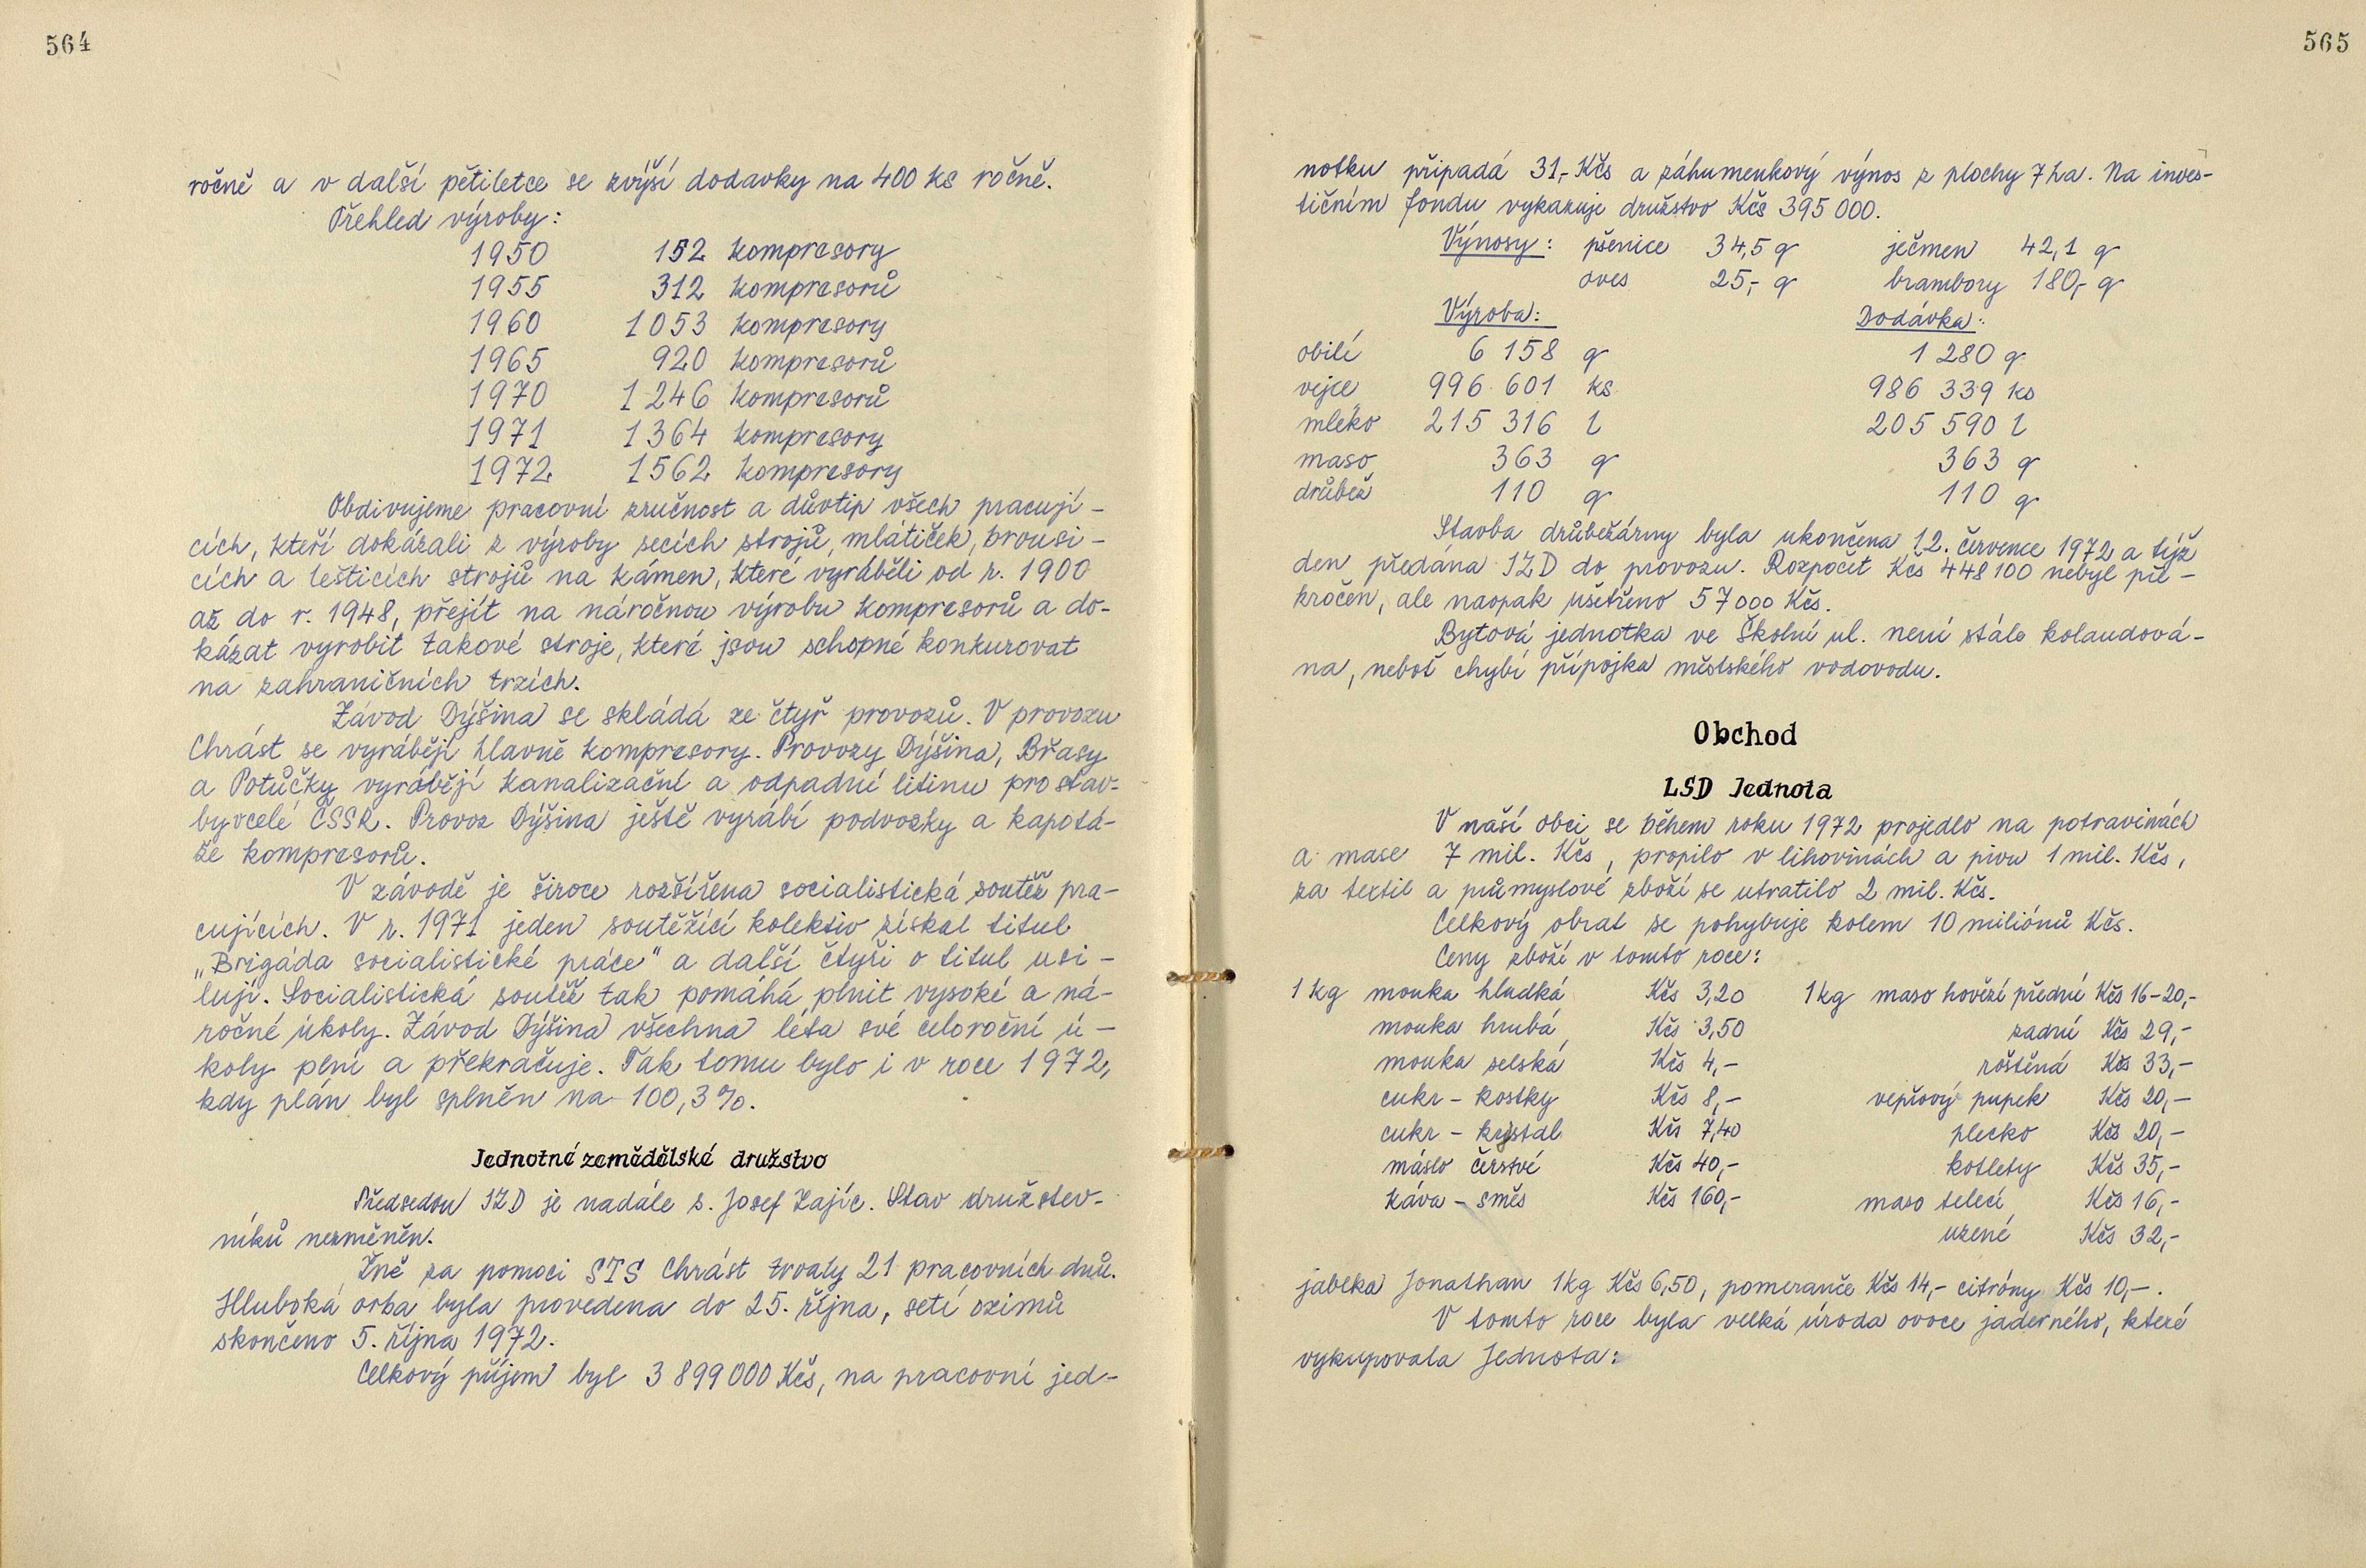 564
ročně a v další pětiletce se zvýší dodavky na 400 ks ročně.
Přehled výroby:
1950 152 kompresory
1955 312 kompresorů
1960 1053 kompresory
1965 920 kompresorů
1970 1246 kompresorů
1971 1364 kompresory
1972 1562 kompresory
Obdivujeme pracovní zručnost a důvtip všech pracují-
cích, kteří dokázali z výroby secích strojů, mlátiček, brousi-
cích a leštících strojů na kámen, které vyráběli od r. 1900
až do r. 1948, přejít na náročnou výrobu kompresorů a do-
kázat vyrobit takové stroje, které jsou schopné konkurovat
na zahraničních trzích.
Závod Dýšina se skládá ze čtyř provozů. V provozu
Chrást se vyrábějí hlavně kompresory. Provozy Dýšina, Břasy
a Potůčky vyrábějí kanalizační a odpadní litinu pro stav-
by celé ČSSR. Provoz Dýšina ještě vyrábí podvozky a kapotá-
že kompresorů.
V závodě je široce rozšířena socialistická soutěž pra-
cujících. V r. 1971 jeden soutěžící kolektiv získal titul
„Brigáda socialistické práce" a další čtyři o titul usi-
lují. Socialistická soutěž tak pomáhá plnit vysoké a ná-
ročné úkoly. Závod Dýšina všechna léta své celoroční ú-
koly plní a překračuje. Tak tomu bylo i v roce 1972,
kdy plán byl splněn na 100,3%.
Jednotné zemědělské družstvo
Předsedou JZD je nadále s. Josef Zajíc. Stav družstev-
níků nezměněn.
Žně za pomoci STS Chrást trvaly 21 pracovních dnů.
Hluboká orba byla provedena do 25. října, setí ozimů
skončeno 5. října 1972.
Celkový příjem byl 3 899 000 Kčs, na pracovní jed-
565
notku připadá 31,- Kčs a záhumenkový výnos z plochy 7 ha. Na inves-
tičním fondu vykazuje družstvo Kčs 395 000.
Výnosy: pšenice 34,5 q ječmen 42,1 q
oves 25,- q brambory 180,- q
Výroba: Dodávka:
obilí 6 158 q 1 280 q
vejce 996 601 ks 986 339 ks
mléko 215 316 l 205 590 l
maso 363 q 363 q
drůbež 110 q 110 q
Stavba drůbežárny byla ukončena 12. července 1972 a týž
den předána JZD do provozu. Rozpočet Kčs 448 100 nebyl pře-
kročen, ale naopak ušetřeno 57 000 Kčs.
Bytová jednotka ve Školní ul. není stále kolaudová-
na, neboť chybí přípojka městského vodovodu.
Obchod
LSD Jednota
V naší obci se během roku 1972 projedlo na potravinách
a mase 7 mil. Kčs, propilo v lihovinách a pivu 1 mil. Kčs,
za textil a průmyslové zboží se utratilo 2 mil. Kčs.
Celkový obrat se pohybuje kolem 10 miliónů Kčs.
Ceny zboží v tomto roce:
1 kg mouka hladká Kčs 3,20 1 kg maso hovězí přední Kčs 16-20,-
mouka hrubá Kčs 3,50 zadní Kčs 29,-
mouka selská Kčs 4,- roštěná Kčs 33,-
cukr - kostky Kčs 8,- vepřový pupek Kčs 20,-
cukr - krystal Kčs 7,40 plecko Kčs 20,-
máslo čerstvé Kčs 40,- kotlety Kčs 35,-
káva - směs Kčs 160,- maso telecí Kčs 16,-
uzené Kčs 32,-
jablka Jonathan 1 kg Kčs 6,50, pomeranče Kčs 14,- citróny Kčs 10,-.
V tomto roce byla velká úroda ovoce jaderného, které
vykupovala Jednota: